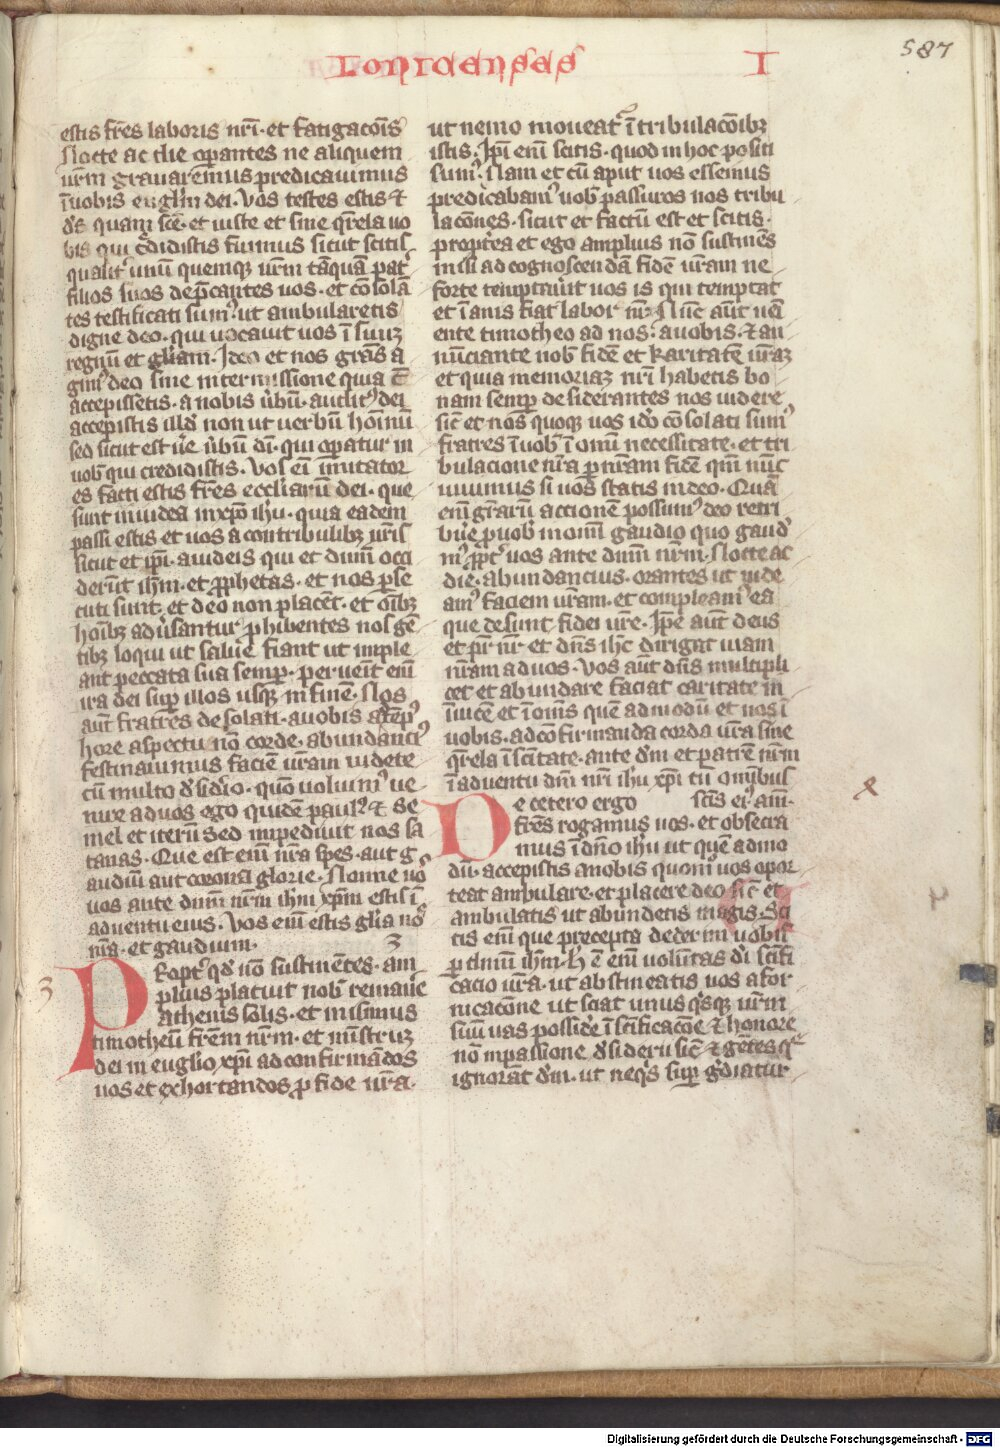 Lonicenses I
587
estis fr̄es laboris nr̄i · et fatigacōis
Nocte ac die oꝑantes ne aliquem
ur̄m grauaremus predicauimus
ī uobis eugl̄m dei · Vos testes estis ⁊
ds̄ quam sc̄e · et iuste et sine qr̄ela uo
bis qui c̄didistis fuimus sicut scitis
qualit̄ unū quemqꝫ ur̄m tāquā pat̄
filios suos dep̄cantes uos · et cōsolā
tes testificati sumꝰ ut ambularetis
digne deo · qui uocauit uos ī suuꝫ
regnū et gl̄iam · Ideo et nos grās a
gimꝰ deo sine intermissione quia c̄
accepissetis · a nobis ūbū · auditꝰ dei
accepistis illd̄ non ut uerbū hoīnū
sed sicut est ūe ūbū dī · qui oꝑatur in
uob̄ qui credidistis · Vos eī imitator
es facti estis fr̄es eccl̄iarū dei · que
sunt in iudea in xp̄o ih̄u · quia eadem
passi estis et uos a contribulibꝫ ur̄is
sicut et ip̄i · a iudeis qui et dn̄m occi
derūt ih̄m · et ꝓphetas · et nos ꝑse
cuti sunt et deo non placēt · et oībꝫ
hoībꝫ adūsantur ꝓhibentes nos gē
tibꝫ loqui ut salue fiant ut imple
ant peccata sua semꝑ · peruenit enī
ira dei suꝑ illos usqꝫ in finē · Nos
aut̄ fratres desolati · a uobis ad tēpꝰ
hore aspectu nō corde · abundāciꝰ
festinauimus faciē ur̄am uidete
cū multo dꝰsidꝰio · quō uoluimꝰ ue
nire ad uos ego quidē paulꝰ ⁊ se
mel et iterū Sed impediuit nos sa
tanas · Que est enī nr̄a spes · aut g
audiū aut corona glorie · Nonne uo
uos ante dn̄m nr̄m ih̄m xp̄m estis ī
aduentu eius · Vos enī estis gl̄ia no
nr̄a · et gaudium · 3
3
Propt̄ qd̄ nō sustinētes · am
plius placuit nob̄ remane
athenis solis · et misimus
timotheū frēm nr̄m · et ministruꝫ
dei in eugl̄io xp̄i ad confirmādos
uos et exhortandos ꝓ fide ur̄a ·
ut nemo moueat̄ ī tribulacōibꝫ
istis · Ip̄i enī scitis · quod in hoc positi
sumꝰ · Nam et cū aput uos essemus
predicabamꝰ uob̄ passuros nos tribu
lacōnes · sicut et factū est et scitis ·
propt̄ea et ego amplius nō sustinēs
misi ad cognoscendā fidē ur̄am ne
forte temptauit uos is qui temptat
et īanis fiat labor nr̄ · Nūc aūt uē
ente timotheo ad nos · a uobis · ⁊ an
nūnciante nob̄ fidē et karitatē ur̄aꝫ
et quia memoriaꝫ nr̄i habetis bo
nam semꝑ desiderantes nos uidere
sic̄ et nos quoqꝫ uos idō cōsolati sumꝰ
fratres ī uob̄ ī omī necessitate · et tri
bulacione nr̄a ꝑ ur̄am fidē qm̄ nūc
uiuimus si uos statis in deo · Quā
enī gr̄arū actionē possumꝰ deo retri
būe ꝓ uob̄ in omī gaudio quo gaudꝰ
mꝰ ꝓpt̄ uos ante dn̄m nr̄m · Nocte ac
die · abundancius · orantes ut uide
amꝰ faciem ur̄am · et compleamꝰ ea
que desunt fidei ur̄e · Ip̄e aūt deus
et pr̄ nr̄ et dn̄s ih̄c dirigat uiam
nr̄am ad uos · Vos aūt dn̄s multipli
cet et abundare faciat caritatē in
īuicē et ī om̄s quē ad modū et nos ī
uobis · ad cōfirmanda corda ur̄a sine
qr̄ela ī sc̄itate · ante dm̄ et patrē nr̄m
ī aduentu dm̄ nr̄i ih̄u xp̄i cū omībus
De cetero ergo sc̄is eiꝰ · am̄ ·
fr̄es rogamus uos · et obsecra
mus ī dn̄o ih̄u ut quē admo
dū · accepistis a nobis quomō uos opor
teat ambulare · et placere deo sic̄ et
ambulatis ut abundetis magis · Sci
tis enī que precepta dederim uobis
ꝑ dn̄m ih̄m · h̄ ē enī uolūtas dī sc̄ifi
cacio ur̄a · ut abstineatis uos a for
nicacōne ut sciat unus qꝰsqꝫ ur̄m
suū uas possidēe ī sc̄ificacōe ⁊ honore
nō in passione dꝰsiderii sic̄ ⁊ gētes q̄
ignorāt dm̄ · ut neqꝰs suꝑ ḡdiatur
Digitalisierung gefördert durch die Deutsche Forschungsgemeinschaft - DFG